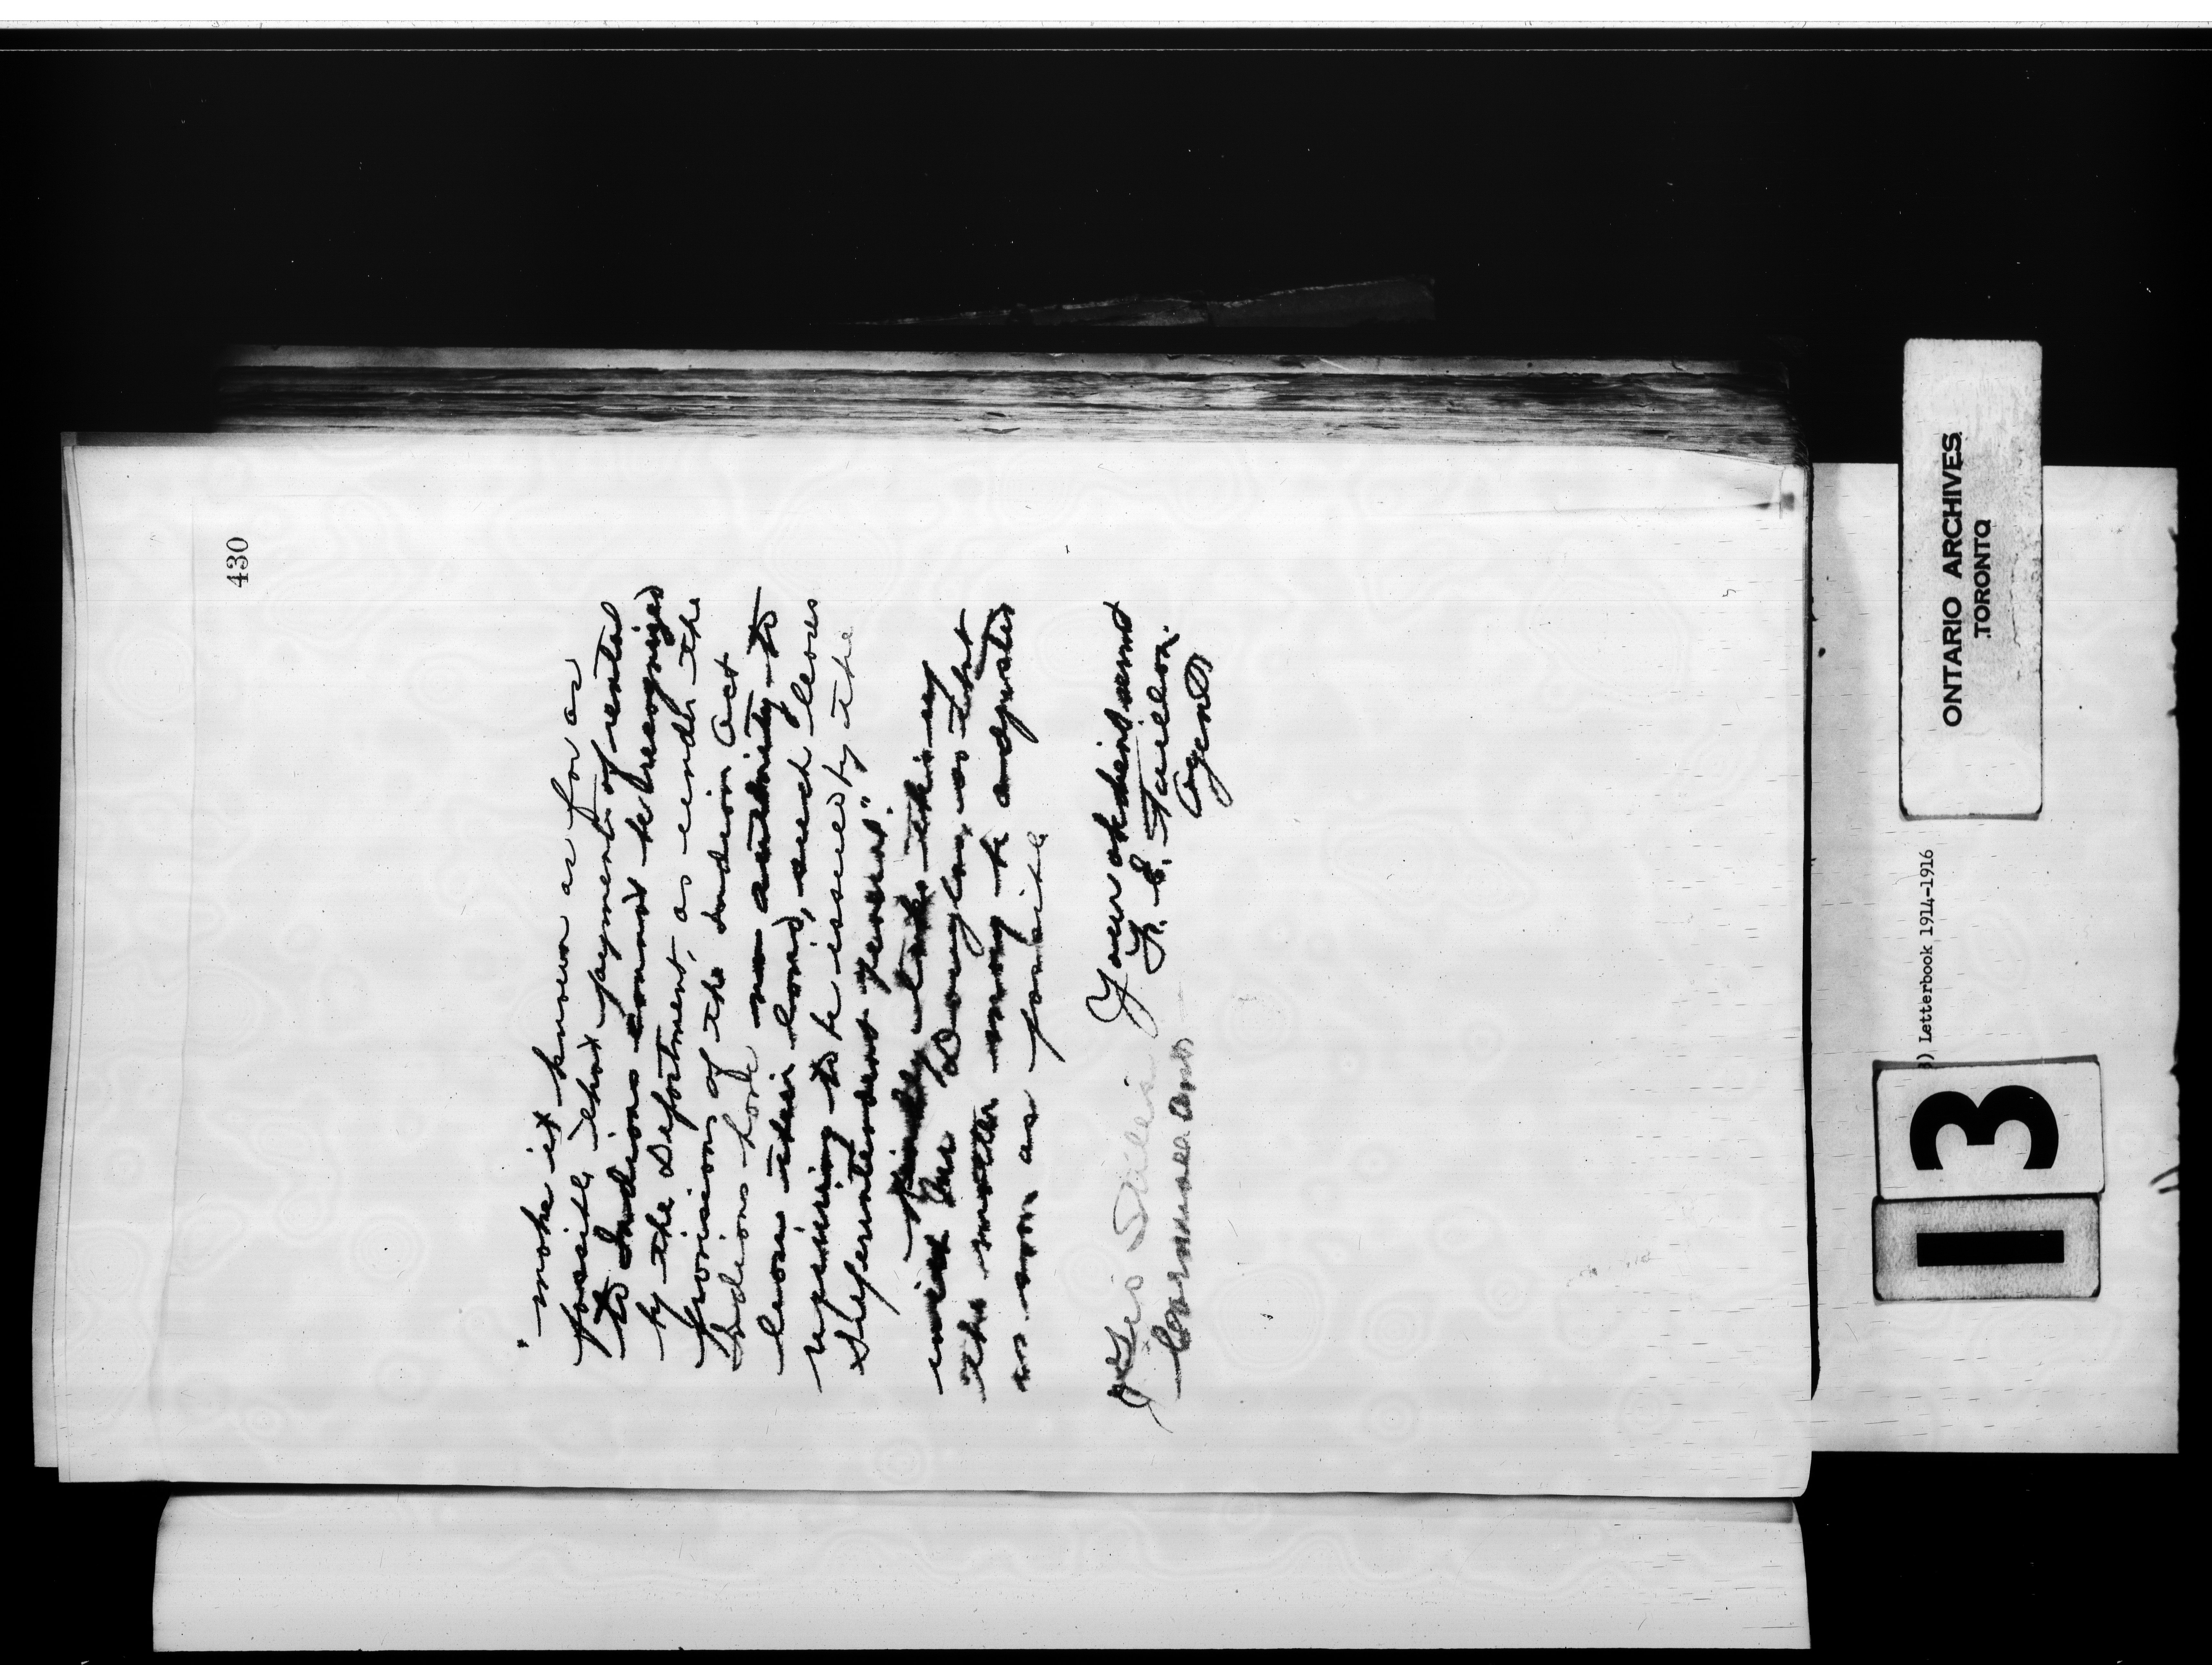 430
"make it known as far as
possible, that payments of rental
to Indians cannot be recognized
by the Department, as under the
provisions of the Indian Act
Indians have no authority to
lease their land, such leases
requiring to be issued by the
Superintendent General".
Kindly take this up
with Mr Douglas, so that
the matter may be adjusted
as soon as possible
Your obedient servant
F. E. Taillon.
Agent
Cornwall Ont
ONTARIO ARCHIVES
TORONTO
) Letterbook 1914-1916
13